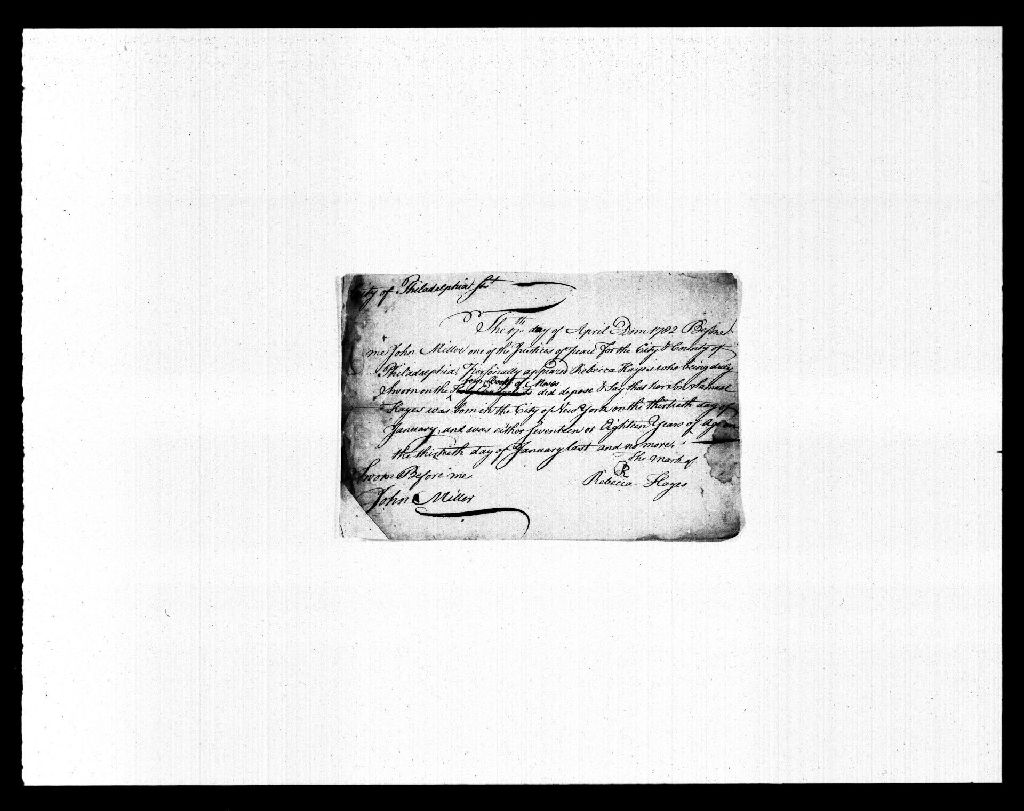 City of Philadelphia Sst
The 17th day of April Dom 1782 Before
me John Miller one of the Justices of Peace for the City & County of
Philadelphia Personally appeared Rebecca Hayes who being duly
five Books of Moses
Sworn on the did depose & Say that her Son Samuel
Hayes was born in the City of New York on the thirtieth day of
January, and was either Seventeen or Eighteen Years of age on
the thirtieth day of January last and no more.
The mark of
Sworn Before me
R
Rebecca Hayes
John Miller